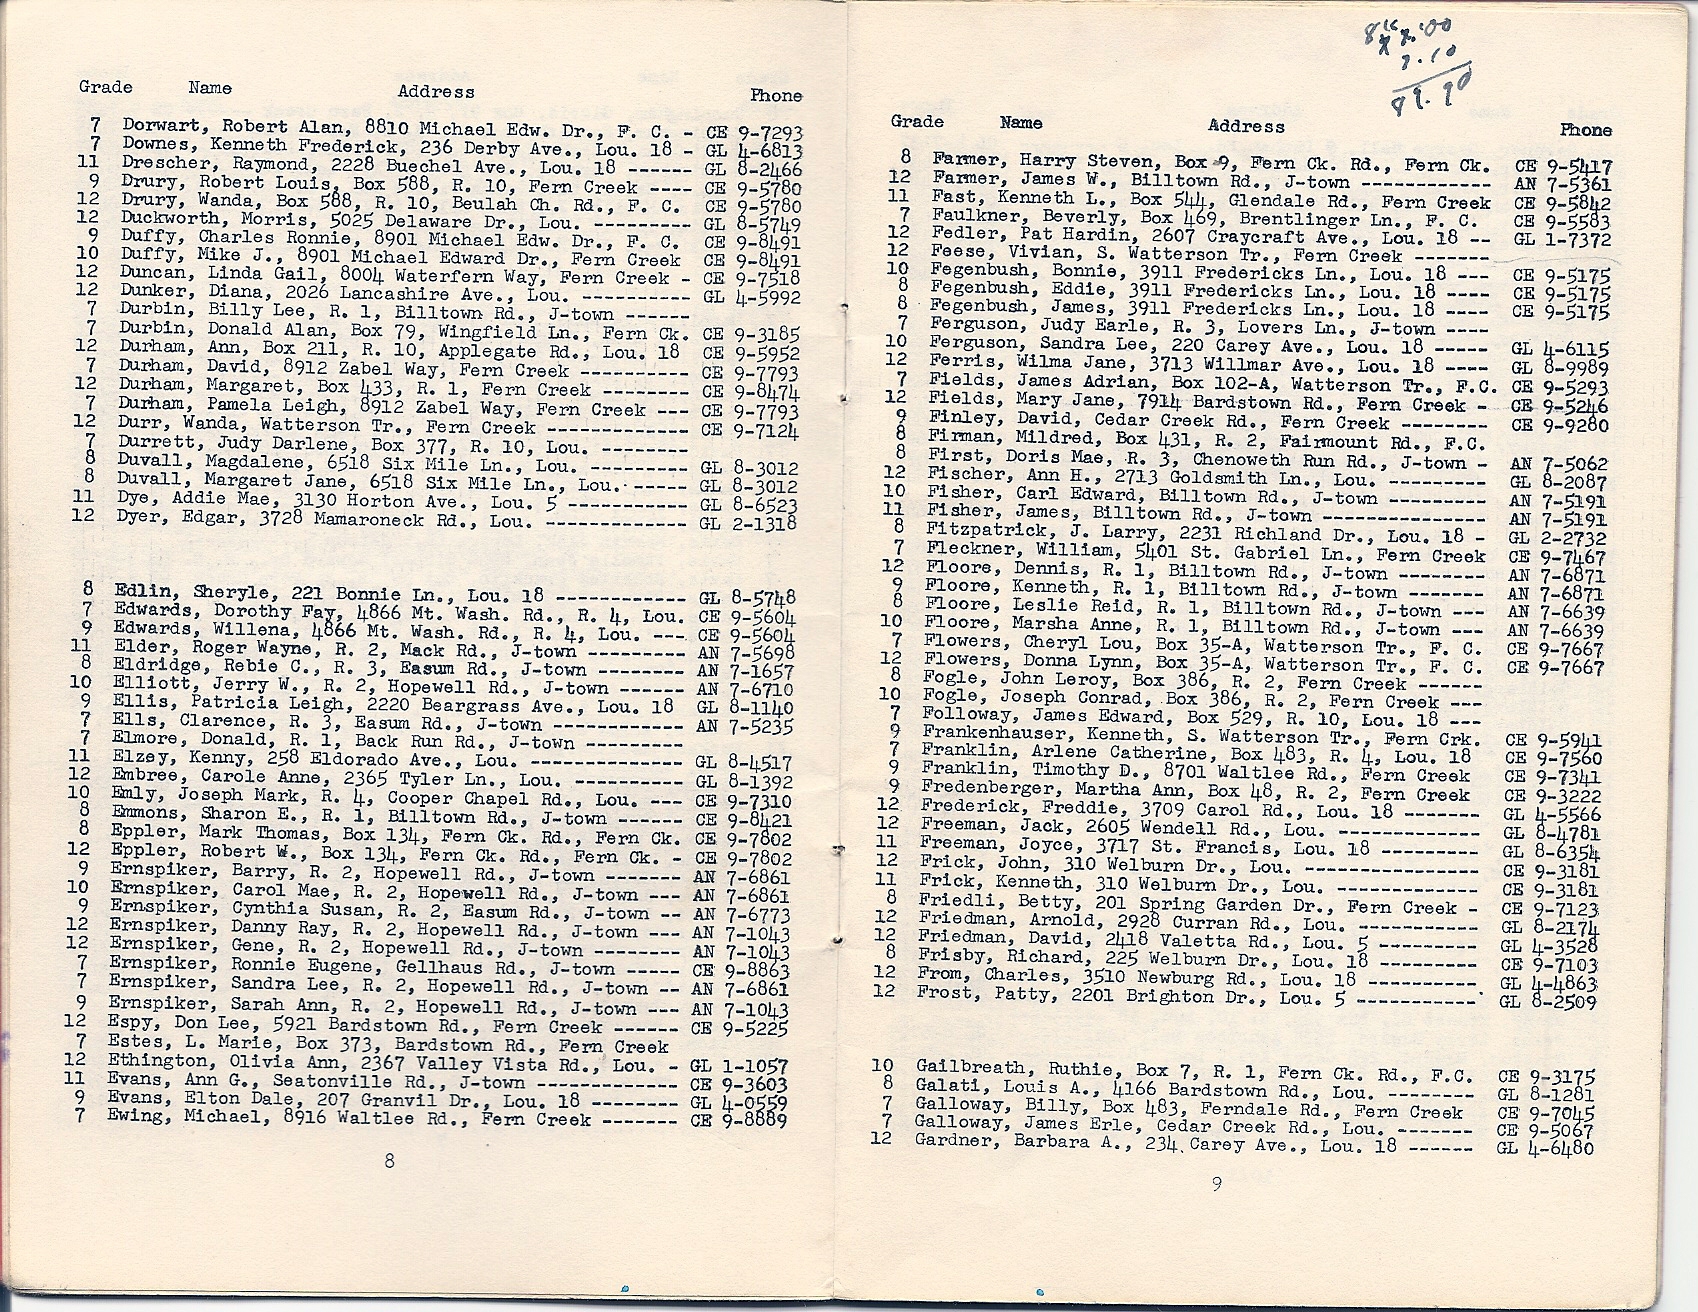 Grade Name Address Phone
7 Dorwart, Robert Alan, 8810 Michael Edw. Dr., F. C. - CE 9-7293
7 Downes, Kenneth Frederick, 236 Derby Ave., Lou. 18 - GL 4-6813
11 Drescher, Raymond, 2228 Buechel Ave., Lou. 18 ------ GL 8-2466
9 Drury, Robert Louis, Box 588, R. 10, Fern Creek ---- CE 9-5780
12 Drury, Wanda, Box 588, R. 10, Beulah Ch. Rd., F. C. CE 9-5780
12 Duckworth, Morris, 5025 Delaware Dr., Lou. --------- GL 8-5749
9 Duffy, Charles Ronnie, 8901 Michael Edw. Dr., F. C. CE 9-8491
10 Duffy, Mike J., 8901 Michael Edward Dr., Fern Creek CE 9-8491
12 Duncan, Linda Gail, 8004 Waterfern Way, Fern Creek - CE 9-7518
12 Dunker, Diana, 2026 Lancashire Ave., Lou. ---------- GL 4-5992
7 Durbin, Billy Lee, R. 1, Billtown Rd., J-town ------
7 Durbin, Donald Alan, Box 79, Wingfield Ln., Fern Ck. CE 9-3185
12 Durham, Ann, Box 211, R. 10, Applegate Rd., Lou. 18 CE 9-5952
7 Durham, David, 8912 Zabel Way, Fern Creek ---------- CE 9-7793
12 Durham, Margaret, Box 433, R. 1, Fern Creek -------- CE 9-8474
7 Durham, Pamela Leigh, 8912 Zabel Way, Fern Creek --- CE 9-7793
12 Durr, Wanda, Watterson Tr., Fern Creek ------------- CE 9-7124
7 Durrett, Judy Darlene, Box 377, R. 10, Lou. --------
8 Duvall, Magdalene, 6518 Six Mile Ln., Lou. --------- GL 8-3012
8 Duvall, Margaret Jane, 6518 Six Mile Ln., Lou. ----- GL 8-3012
11 Dye, Addie Mae, 3130 Horton Ave., Lou. 5 ----------- GL 8-6523
12 Dyer, Edgar, 3728 Mamaroneck Rd., Lou. ------------- GL 2-1318
8 Edlin, Sheryle, 221 Bonnie Ln., Lou. 18 ------------ GL 8-5748
7 Edwards, Dorothy Fay, 4866 Mt. Wash. Rd., R. 4, Lou. CE 9-5604
9 Edwards, Willena, 4866 Mt. Wash. Rd., R. 4, Lou. --- CE 9-5604
11 Elder, Roger Wayne, R. 2, Mack Rd., J-town --------- AN 7-5698
8 Eldridge, Rebie C., R. 3, Easum Rd., J-town -------- AN 7-1657
10 Elliott, Jerry W., R. 2, Hopewell Rd., J-town ------ AN 7-6710
9 Ellis, Patricia Leigh, 2220 Beargrass Ave., Lou. 18 GL 8-1140
7 Ells, Clarence, R. 3, Easum Rd., J-town ------------ AN 7-5235
7 Elmore, Donald, R. 1, Back Run Rd., J-town ---------
11 Elzey, Kenny, 258 Eldorado Ave., Lou. -------------- GL 8-4517
12 Embree, Carole Anne, 2365 Tyler Ln., Lou. ---------- GL 8-1392
10 Emly, Joseph Mark, R. 4, Cooper Chapel Rd., Lou. --- CE 9-7310
8 Emmons, Sharon E., R. 1, Billtown Rd., J-town ------ CE 9-8421
8 Eppler, Mark Thomas, Box 134, Fern Ck. Rd., Fern Ck. CE 9-7802
12 Eppler, Robert W., Box 134, Fern Ck. Rd., Fern Ck. - CE 9-7802
9 Ernspiker, Barry, R. 2, Hopewell Rd., J-town ------- AN 7-6861
10 Ernspiker, Carol Mae, R. 2, Hopewell Rd., J-town --- AN 7-6861
9 Ernspiker, Cynthia Susan, R. 2, Easum Rd., J-town -- AN 7-6773
12 Ernspiker, Danny Ray, R. 2, Hopewell Rd., J-town --- AN 7-1043
12 Ernspiker, Gene, R. 2, Hopewell Rd., J-town -------- AN 7-1043
7 Ernspiker, Ronnie Eugene, Gellhaus Rd., J-town ----- CE 9-8863
7 Ernspiker, Sandra Lee, R. 2, Hopewell Rd., J-town -- AN 7-6861
9 Ernspiker, Sarah Ann, R. 2, Hopewell Rd., J-town --- AN 7-1043
12 Espy, Don Lee, 5921 Bardstown Rd., Fern Creek ------ CE 9-5225
7 Estes, L. Marie, Box 373, Bardstown Rd., Fern Creek
12 Ethington, Olivia Ann, 2367 Valley Vista Rd., Lou. - GL 1-1057
11 Evans, Ann G., Seatonville Rd., J-town ------------- CE 9-3603
9 Evans, Elton Dale, 207 Granvil Dr., Lou. 18 -------- GL 4-0559
7 Ewing, Michael, 8916 Waltlee Rd., Fern Creek ------- CE 9-8889
8
Grade Name Address Phone
8 Farmer, Harry Steven, Box 9, Fern Ck. Rd., Fern Ck. CE 9-5417
12 Farmer, James W., Billtown Rd., J-town ------------ AN 7-5361
11 Fast, Kenneth L., Box 544, Glendale Rd., Fern Creek CE 9-5842
7 Faulkner, Beverly, Box 469, Brentlinger Ln., F. C. CE 9-5583
12 Fedler, Pat Hardin, 2607 Craycraft Ave., Lou. 18 -- GL 1-7372
12 Feese, Vivian, S. Watterson Tr., Fern Creek -------
10 Fegenbush, Bonnie, 3911 Fredericks Ln., Lou. 18 --- CE 9-5175
8 Fegenbush, Eddie, 3911 Fredericks Ln., Lou. 18 ---- CE 9-5175
8 Fegenbush, James, 3911 Fredericks Ln., Lou. 18 ---- CE 9-5175
7 Ferguson, Judy Earle, R. 3, Lovers Ln., J-town ----
10 Ferguson, Sandra Lee, 220 Carey Ave., Lou. 18 ----- GL 4-6115
12 Ferris, Wilma Jane, 3713 Willmar Ave., Lou. 18 ---- GL 8-9989
7 Fields, James Adrian, Box 102-A, Watterson Tr., F.C. CE 9-5293
12 Fields, Mary Jane, 7914 Bardstown Rd., Fern Creek - CE 9-5246
9 Finley, David, Cedar Creek Rd., Fern Creek -------- CE 9-9280
8 Firman, Mildred, Box 431, R. 2, Fairmount Rd., F.C.
8 First, Doris Mae, R. 3, Chenoweth Run Rd., J-town - AN 7-5062
12 Fischer, Ann H., 2713 Goldsmith Ln., Lou. --------- GL 8-2087
10 Fisher, Carl Edward, Billtown Rd., J-town --------- AN 7-5191
11 Fisher, James, Billtown Rd., J-town --------------- AN 7-5191
8 Fitzpatrick, J. Larry, 2231 Richland Dr., Lou. 18 - GL 2-2732
7 Fleckner, William, 5401 St. Gabriel Ln., Fern Creek CE 9-7467
12 Floore, Dennis, R. 1, Billtown Rd., J-town -------- AN 7-6871
9 Floore, Kenneth, R. 1, Billtown Rd., J-town ------- AN 7-6871
8 Floore, Leslie Reid, R. 1, Billtown Rd., J-town --- AN 7-6639
10 Floore, Marsha Anne, R. 1, Billtown Rd., J-town --- AN 7-6639
7 Flowers, Cheryl Lou, Box 35-A, Watterson Tr., F. C. CE 9-7667
12 Flowers, Donna Lynn, Box 35-A, Watterson Tr., F. C. CE 9-7667
8 Fogle, John Leroy, Box 386, R. 2, Fern Creek ------
10 Fogle, Joseph Conrad, Box 386, R. 2, Fern Creek ---
7 Followay, James Edward, Box 529, R. 10, Lou. 18 ---
9 Frankenhauser, Kenneth, S. Watterson Tr., Fern Crk. CE 9-5941
7 Franklin, Arlene Catherine, Box 483, R. 4, Lou. 18 CE 9-7560
9 Franklin, Timothy D., 8701 Waltlee Rd., Fern Creek CE 9-7341
9 Fredenberger, Martha Ann, Box 48, R. 2, Fern Creek CE 9-3222
12 Frederick, Freddie, 3709 Carol Rd., Lou. 18 ------- GL 4-5566
12 Freeman, Jack, 2605 Wendell Rd., Lou. ------------- GL 8-4781
11 Freeman, Joyce, 3717 St. Francis, Lou. 18 --------- GL 8-6354
12 Frick, John, 310 Welburn Dr., Lou. ---------------- CE 9-3181
11 Frick, Kenneth, 310 Welburn Dr., Lou. ------------- CE 9-3181
8 Friedli, Betty, 201 Spring Garden Dr., Fern Creek - CE 9-7123
12 Friedman, Arnold, 2928 Curran Rd., Lou. ----------- GL 8-2174
12 Friedman, David, 2418 Valetta Rd., Lou. 5 --------- GL 4-3528
8 Frisby, Richard, 225 Welburn Dr., Lou. 18 --------- CE 9-7103
12 From, Charles, 3510 Newburg Rd., Lou. 18 ---------- GL 4-4863
12 Frost, Patty, 2201 Brighton Dr., Lou. 5 ----------- GL 8-2509
10 Gailbreath, Ruthie, Box 7, R. 1, Fern Ck. Rd., F.C. CE 9-3175
8 Galati, Louis A., 4166 Bardstown Rd., Lou. -------- GL 8-1281
7 Galloway, Billy, Box 483, Ferndale Rd., Fern Creek CE 9-7045
7 Galloway, James Erle, Cedar Creek Rd., Lou. ------- CE 9-5067
12 Gardner, Barbara A., 234 Carey Ave., Lou. 18 ------ GL 4-6480
9